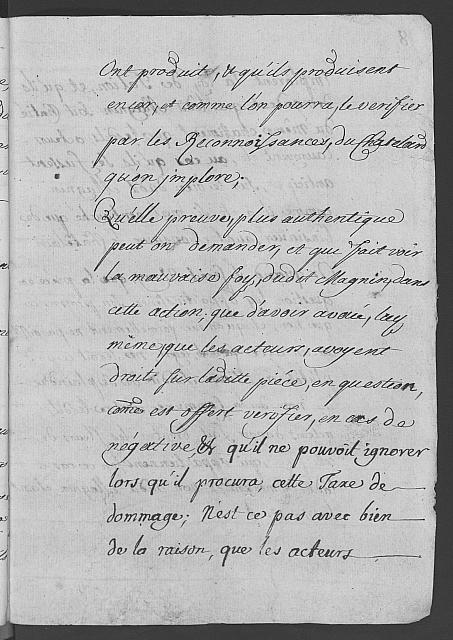 Ont produit, & qu'ils produisent
encor, et comme l'on pourra, le verifier
par les Reconnoissances, du Chatelard
qu'on implore;
Quelle preuve, plus authentique
peut on demander, et qui fait voir
la mauvaise foy, dudit Magnin, dans
cette action; que d'avoir avoüe, luy
même, que les acteurs, avoyent
droits sur laditte piéce, en question,
come est offert verifier, en cas de
négative, & qu'il ne pouvoit ignorer
lors qu'il procura, cette Taxe de
dommage; N'est ce pas avec bien
de la raison, que les acteurs